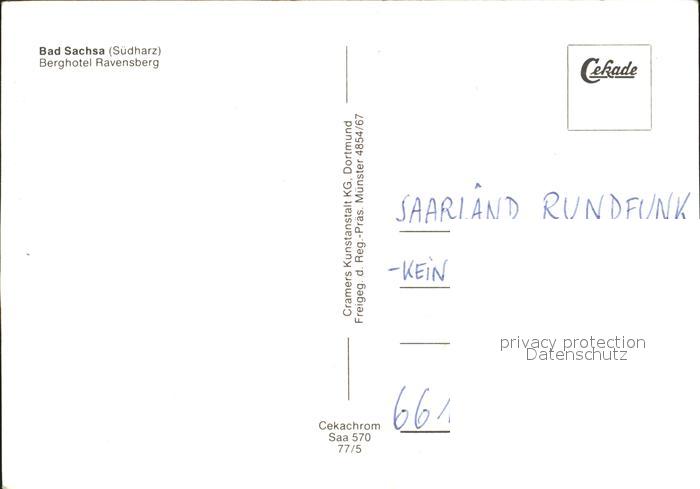 Bad Sachsa (Südharz)
Berghotel Ravensberg
Cekade
Cramers Kunstanstalt KG, Dortmund
Freigeg. d. Reg.-Präs. Münster 4854/67
SAARLAND RUNDFUNK
-KEIN
privacy protection
Datenschutz
661
Cekachrom
Saa 570
77/5